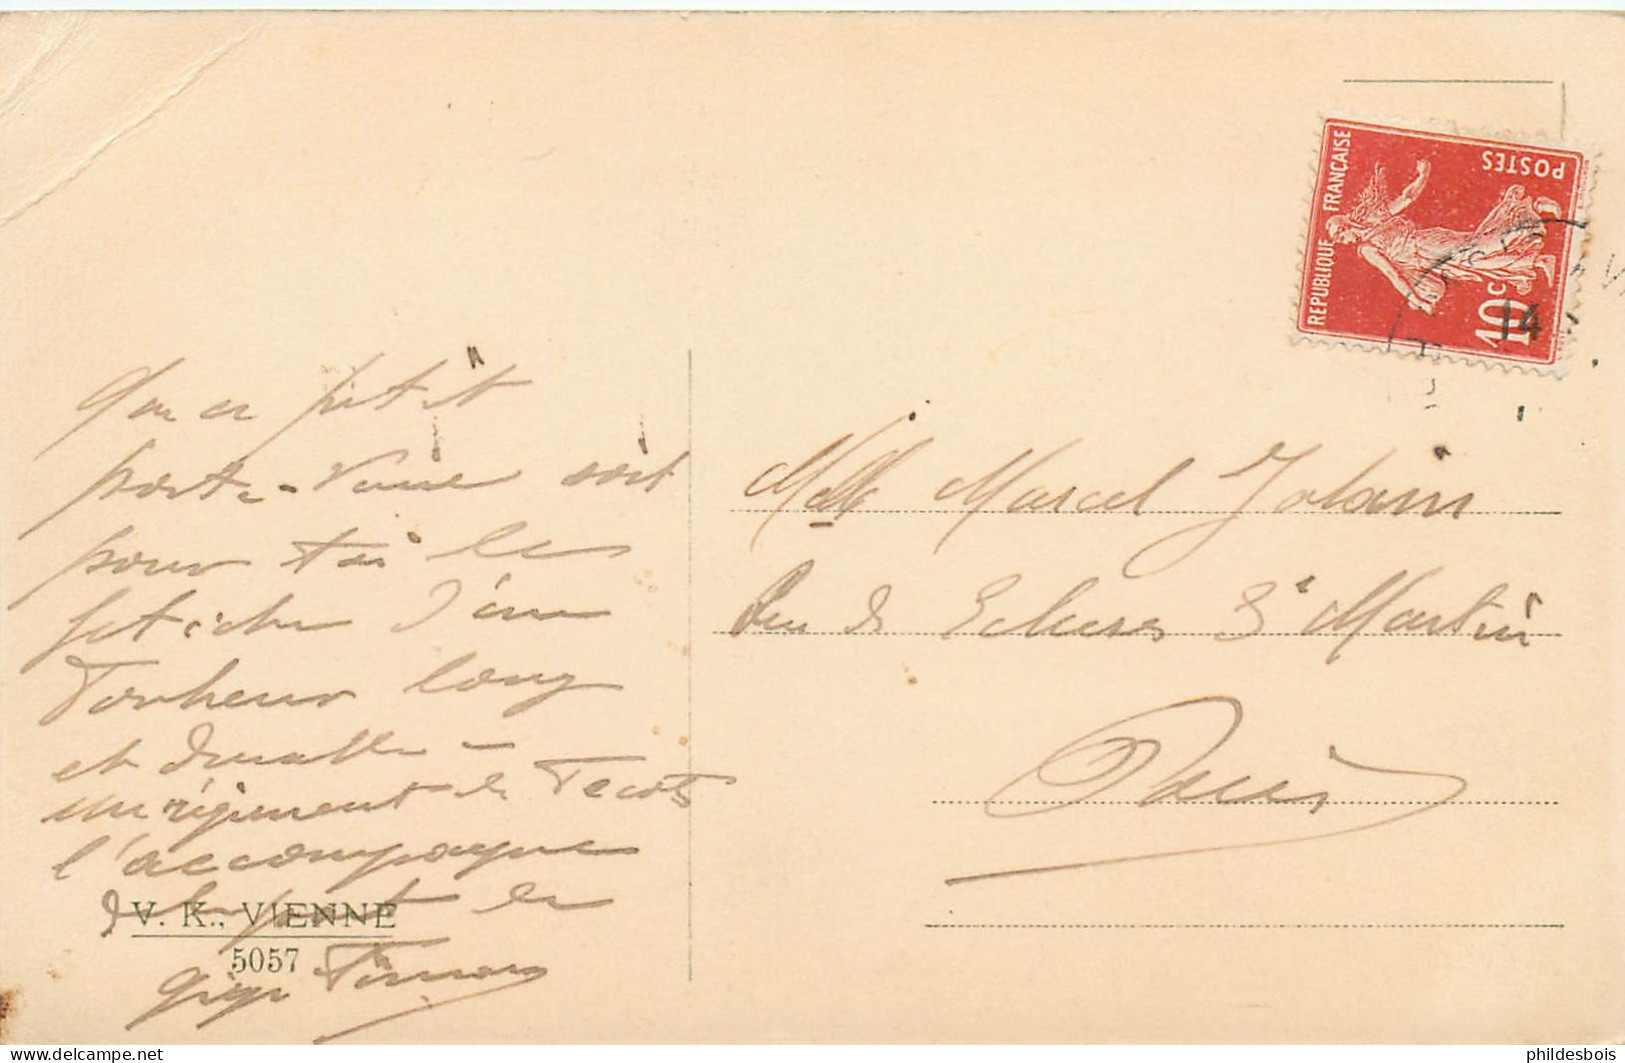 Que ce petit
porte-veine soit
pour toi le
fétiche d'un
bonheur long
et durable -
un régiment de bécots
l'accompagne
de la part de
V. K., VIENNE
5057
Melle Marcel Jolain
Rue des Ecluses St Martin
Paris
REPUBLIQUE FRANÇAISE
POSTES
10c
14
delcampe.net
phildesbois